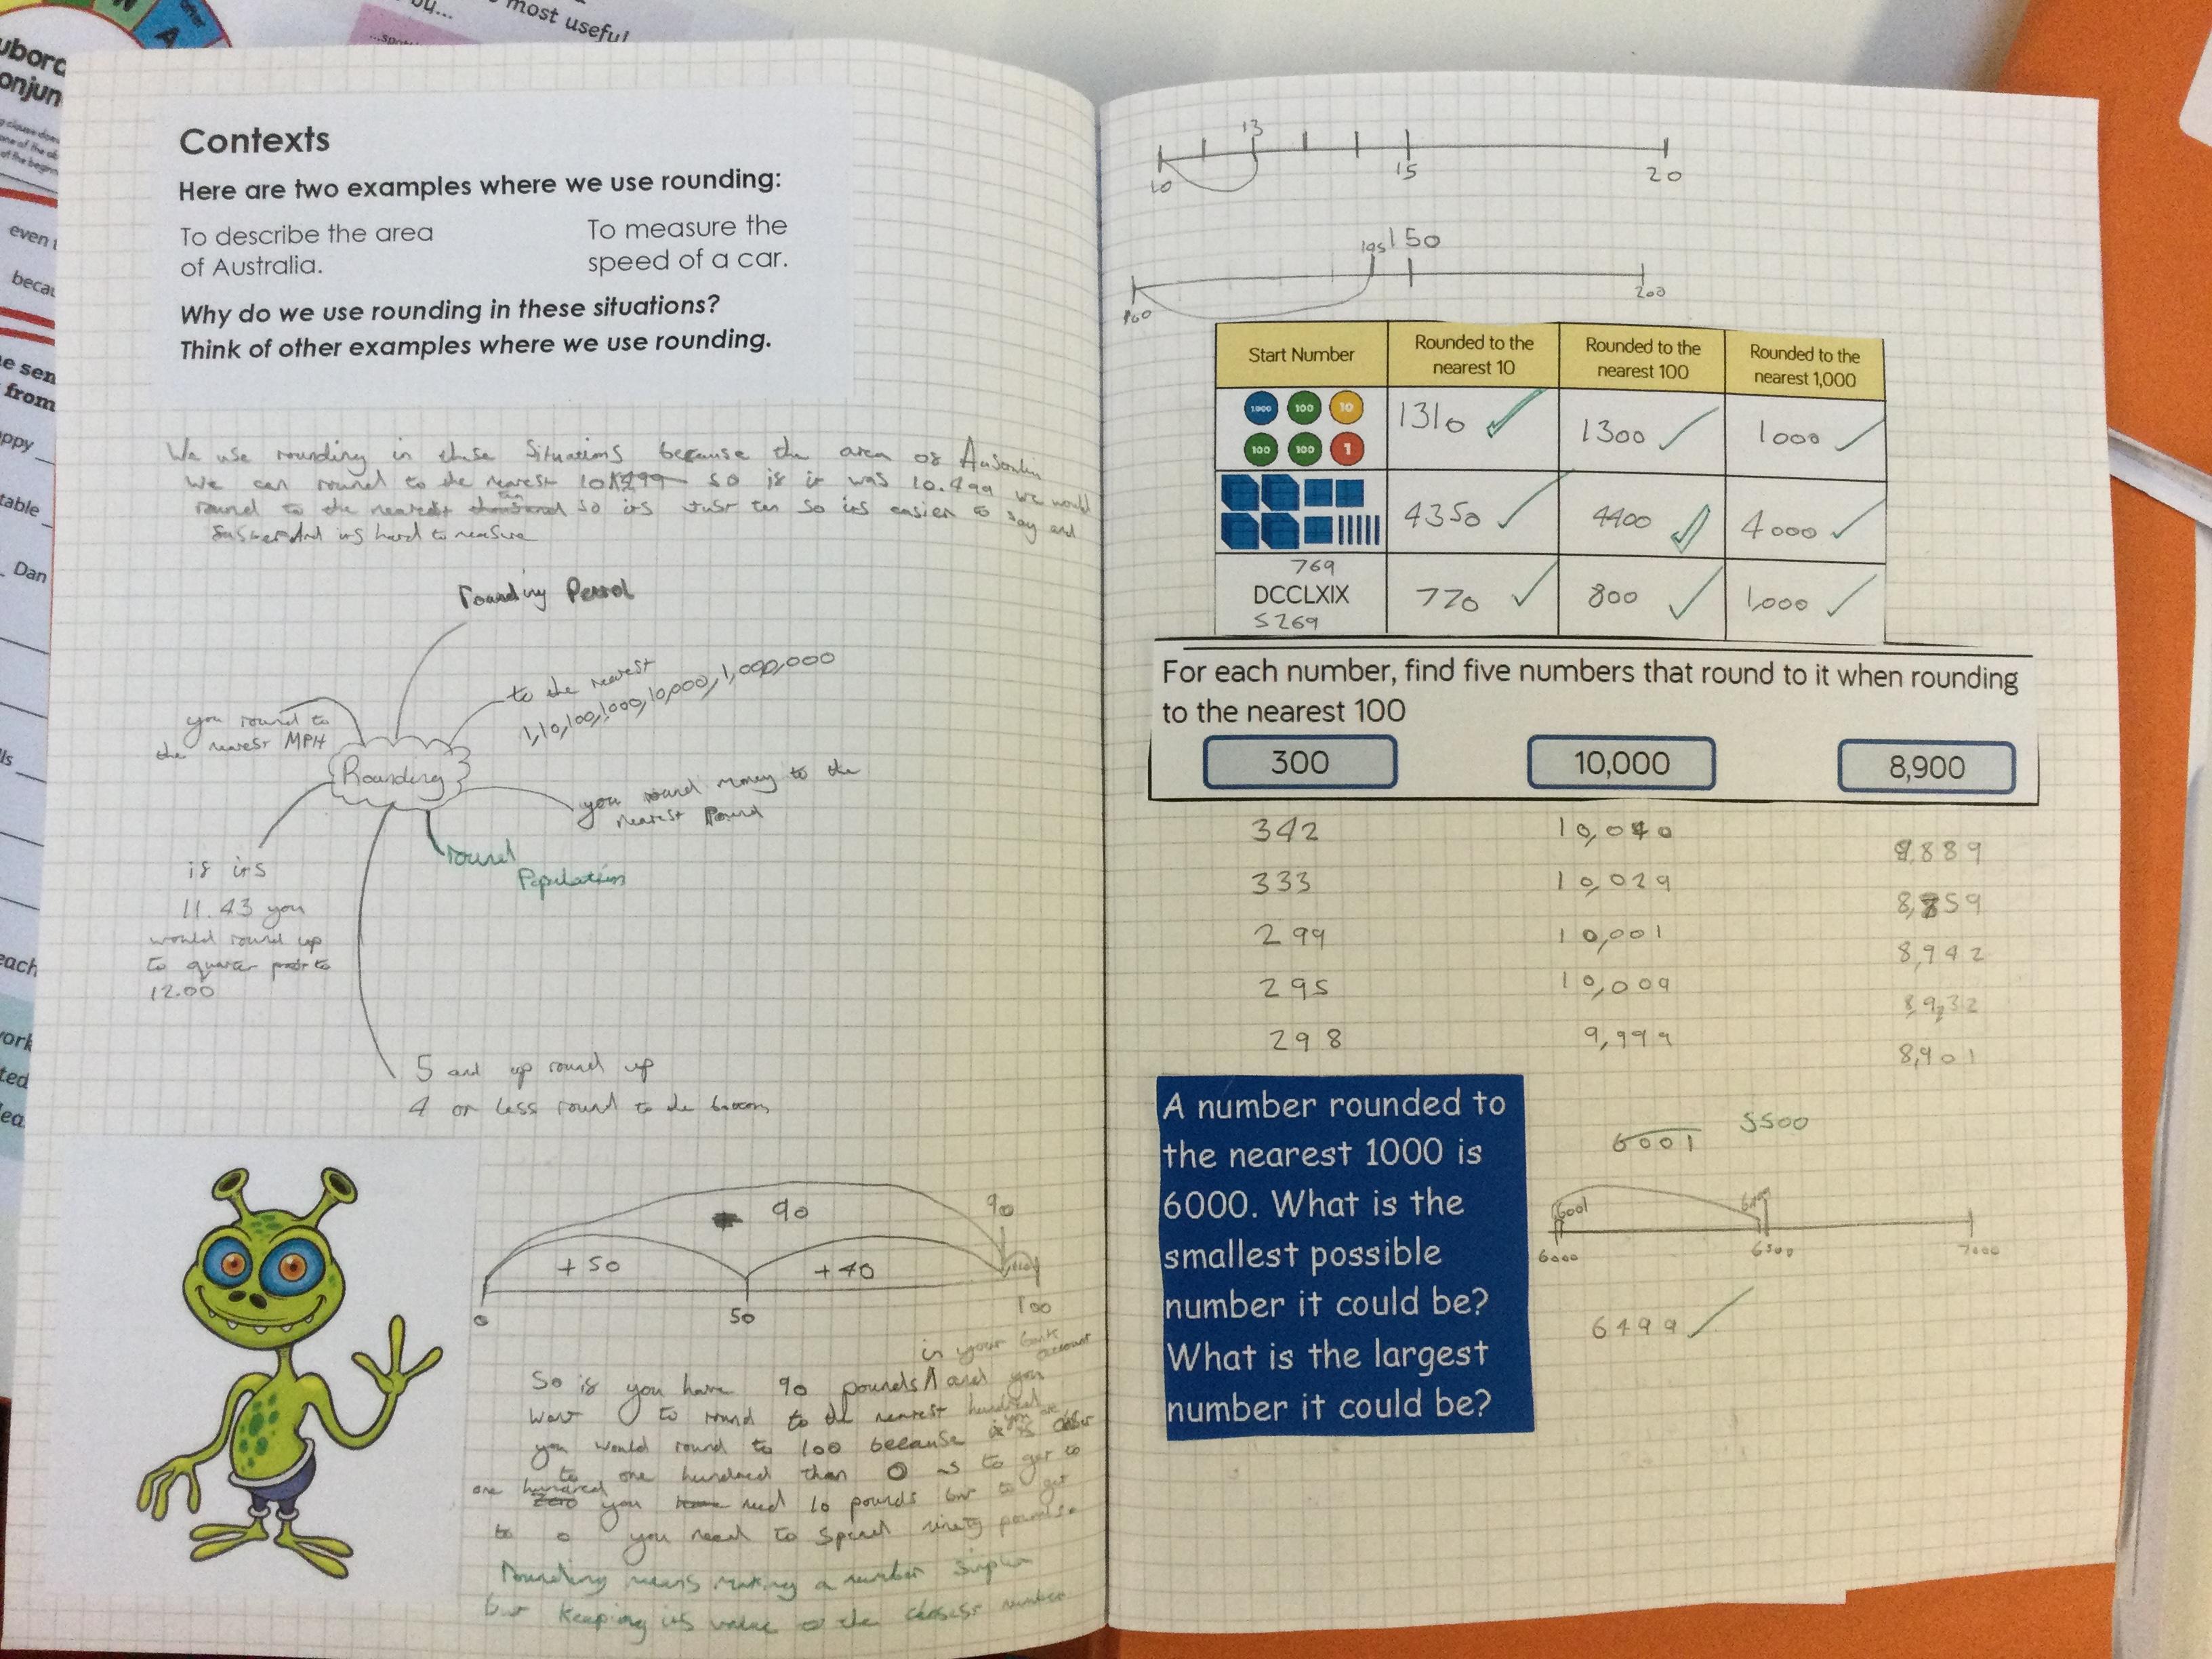 ou...
most useful
...spot
uborc
onjun
even
becau
e sen
from
ppy
table
Dan
ls
each
work
ted
lea
Contexts
Here are two examples where we use rounding:
To describe the area
of Australia.
To measure the
speed of a car.
Why do we use rounding in these situations?
Think of other examples where we use rounding.
We use rounding in these situations because the area of
we can round to the nearest so if it was 10.499 we would
round to the nearest ten so its just ten so its easier to say and
And its hard to measure
rounding Petrol
to the nearest
1,10,100,1000,10,000,1,000,000
you round to
the nearest MPH
Rounding
you round money to the
nearest Pound
round
Population
if its
11.43 you
would round up
to quarter to
12.00
5 and up round up
4 or less round to the bottom
90
90
+50
+40
0
50
100
in your bank
account
So if you have 90 pounds and you
want to round to the nearest hundred
you would round to 100 because you are closer
to one hundred than 0 to get to
one hundred you need 10 pounds but to get
to 0 you need to spend ninety pounds.
Rounding means making a number simpler
but keeping its value to the closest number
13
10
15
20
195
150
100
200
Start Number
Rounded to the
nearest 10
Rounded to the
nearest 100
Rounded to the
nearest 1,000
1000 100 10
100 100 1
1310
1300
1000
4350
4400
4000
769
DCCLXIX
5269
770
800
1,000
For each number, find five numbers that round to it when rounding
to the nearest 100
300
10,000
8,900
342
333
299
295
298
10,040
10,029
10,001
10,009
9,999
8,889
8,859
8,942
8,932
8,901
A number rounded to
the nearest 1000 is
6000. What is the
smallest possible
number it could be?
What is the largest
number it could be?
6001
5500
6001
6000
6500
7000
6499